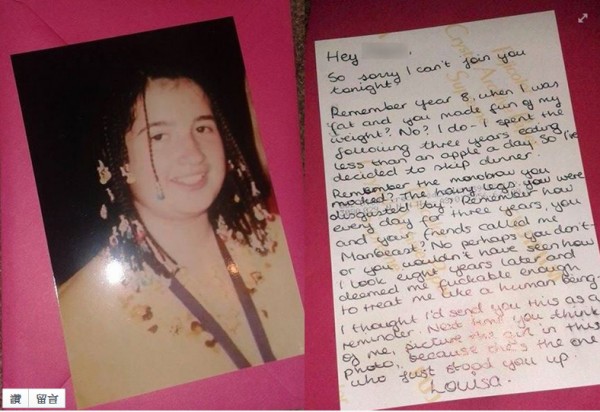 Hey ,
So sorry I can't join you
tonight.
Remember year 8, when I was
fat and you made fun of my
weight? No? I do - I spent the
following three years eating
less than an apple a day. So I've
decided to skip dinner.
Remember the monobrow you
mocked? The hairy legs you were
disgusted by? Remember how
every day for three years, you
and your friends called me
Manbeast? No perhaps you don't -
or you wouldn't have seen how
I look eight years later and
deemed me fuckable enough
to treat me like a human being.
I thought I'd send you this as a
reminder. Next time you think
of me, picture the girl in this
photo, because she's the one
who just stood you up.
Louisa.
讚 留言